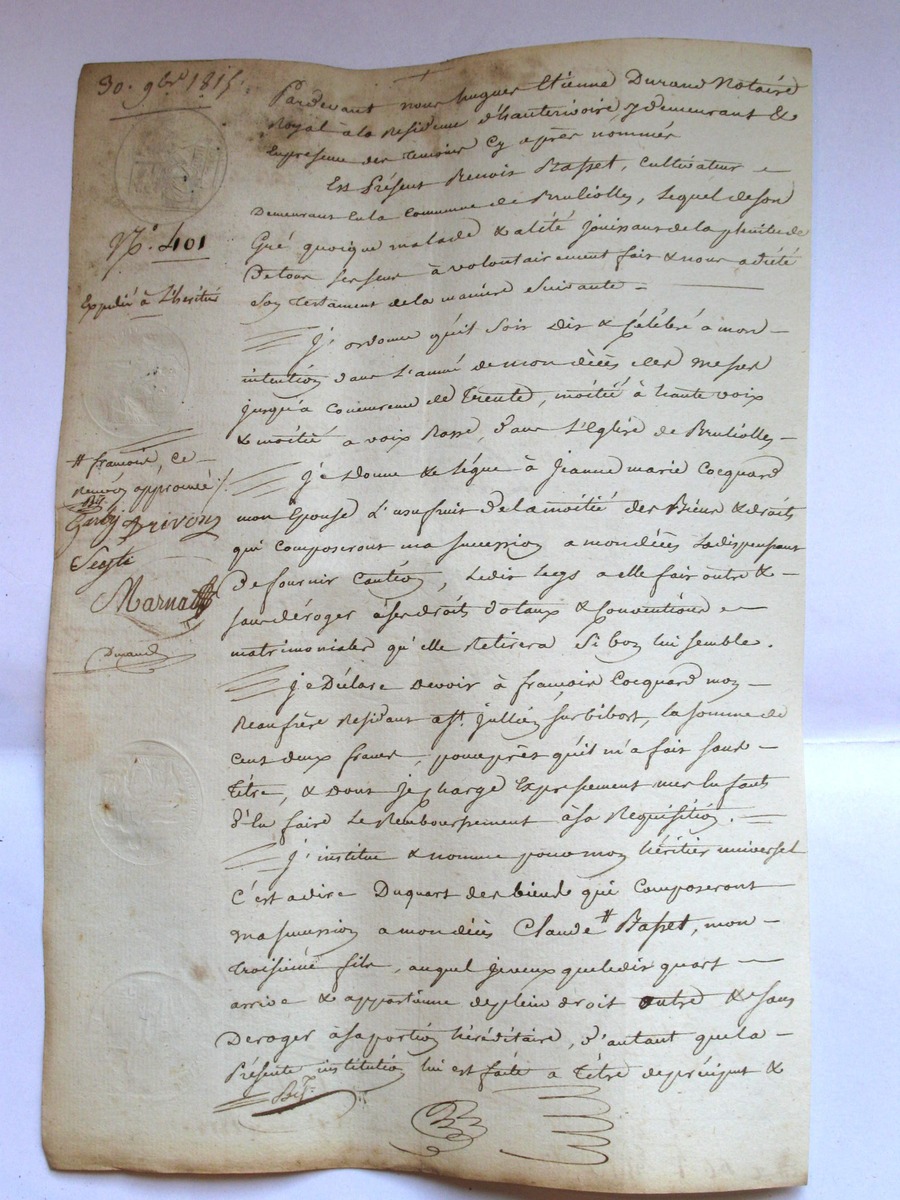 30. 9bre 1815.
Pardevant nous hugues Etienne Durand Notaire
Royal à la Residence d'hauterivoire, y demeurant &
En presence des temoins cy après nommés
Est Présent Benoit Basset, Cultivateur
Demeurant en la Commune de Brulliolles, lequel de son
Gré quoique malade & alité jouissant de la plenitude
De tous ses sens à volontairement fait & nous a dicté
Son testament de la maniere Suivante
N.º 401
Expedié à L'heritié
J'ordonne qu'il Soit Dit & Célébré a mon
intention dans L'année de mon décès des messes
jusqu'a Concurence de Trente, moitié à haute voix
& moitié a voix Basse, dans L'Eglise de Brulliolles
Je Donne & legue à Jeanne marie Cocquard
mon Epouse L'usufruit de la moitié des Biens & droits
qui Composeront ma succession a mon décès La dispensant
De fournir Caution, Ledit Legs a elle fait outre &
sans déroger à ses droits dotaux & Conventions
matrimoniales qu'elle Retirera Si bon lui semble.
# françois, ce
Renvoi approuvé
Drivon
Marnas
Durand
Je Déclare devoir à françois Cocquard mon
Beaufrère Résidant a St. Jullien sur bibost, la somme de
Cent deux francs, pour prêt qu'il m'a fait sans
Titre, & dont je charge Expressement mes Enfants
d'En faire Le Remboursement à sa Requisition.
J'institue & nomme pour mon héritier universel
C'est a dire Du quart des biens qui Composeront
ma succession a mon décès Claude # Basset, mon
Troisième fils, auquel je veux que ledit quart
arrive & appartienne de plein droit outre & sans
Deroger à sa portion héréditaire, d'autant que la
Présente institution lui est faite a Titre de préciput &